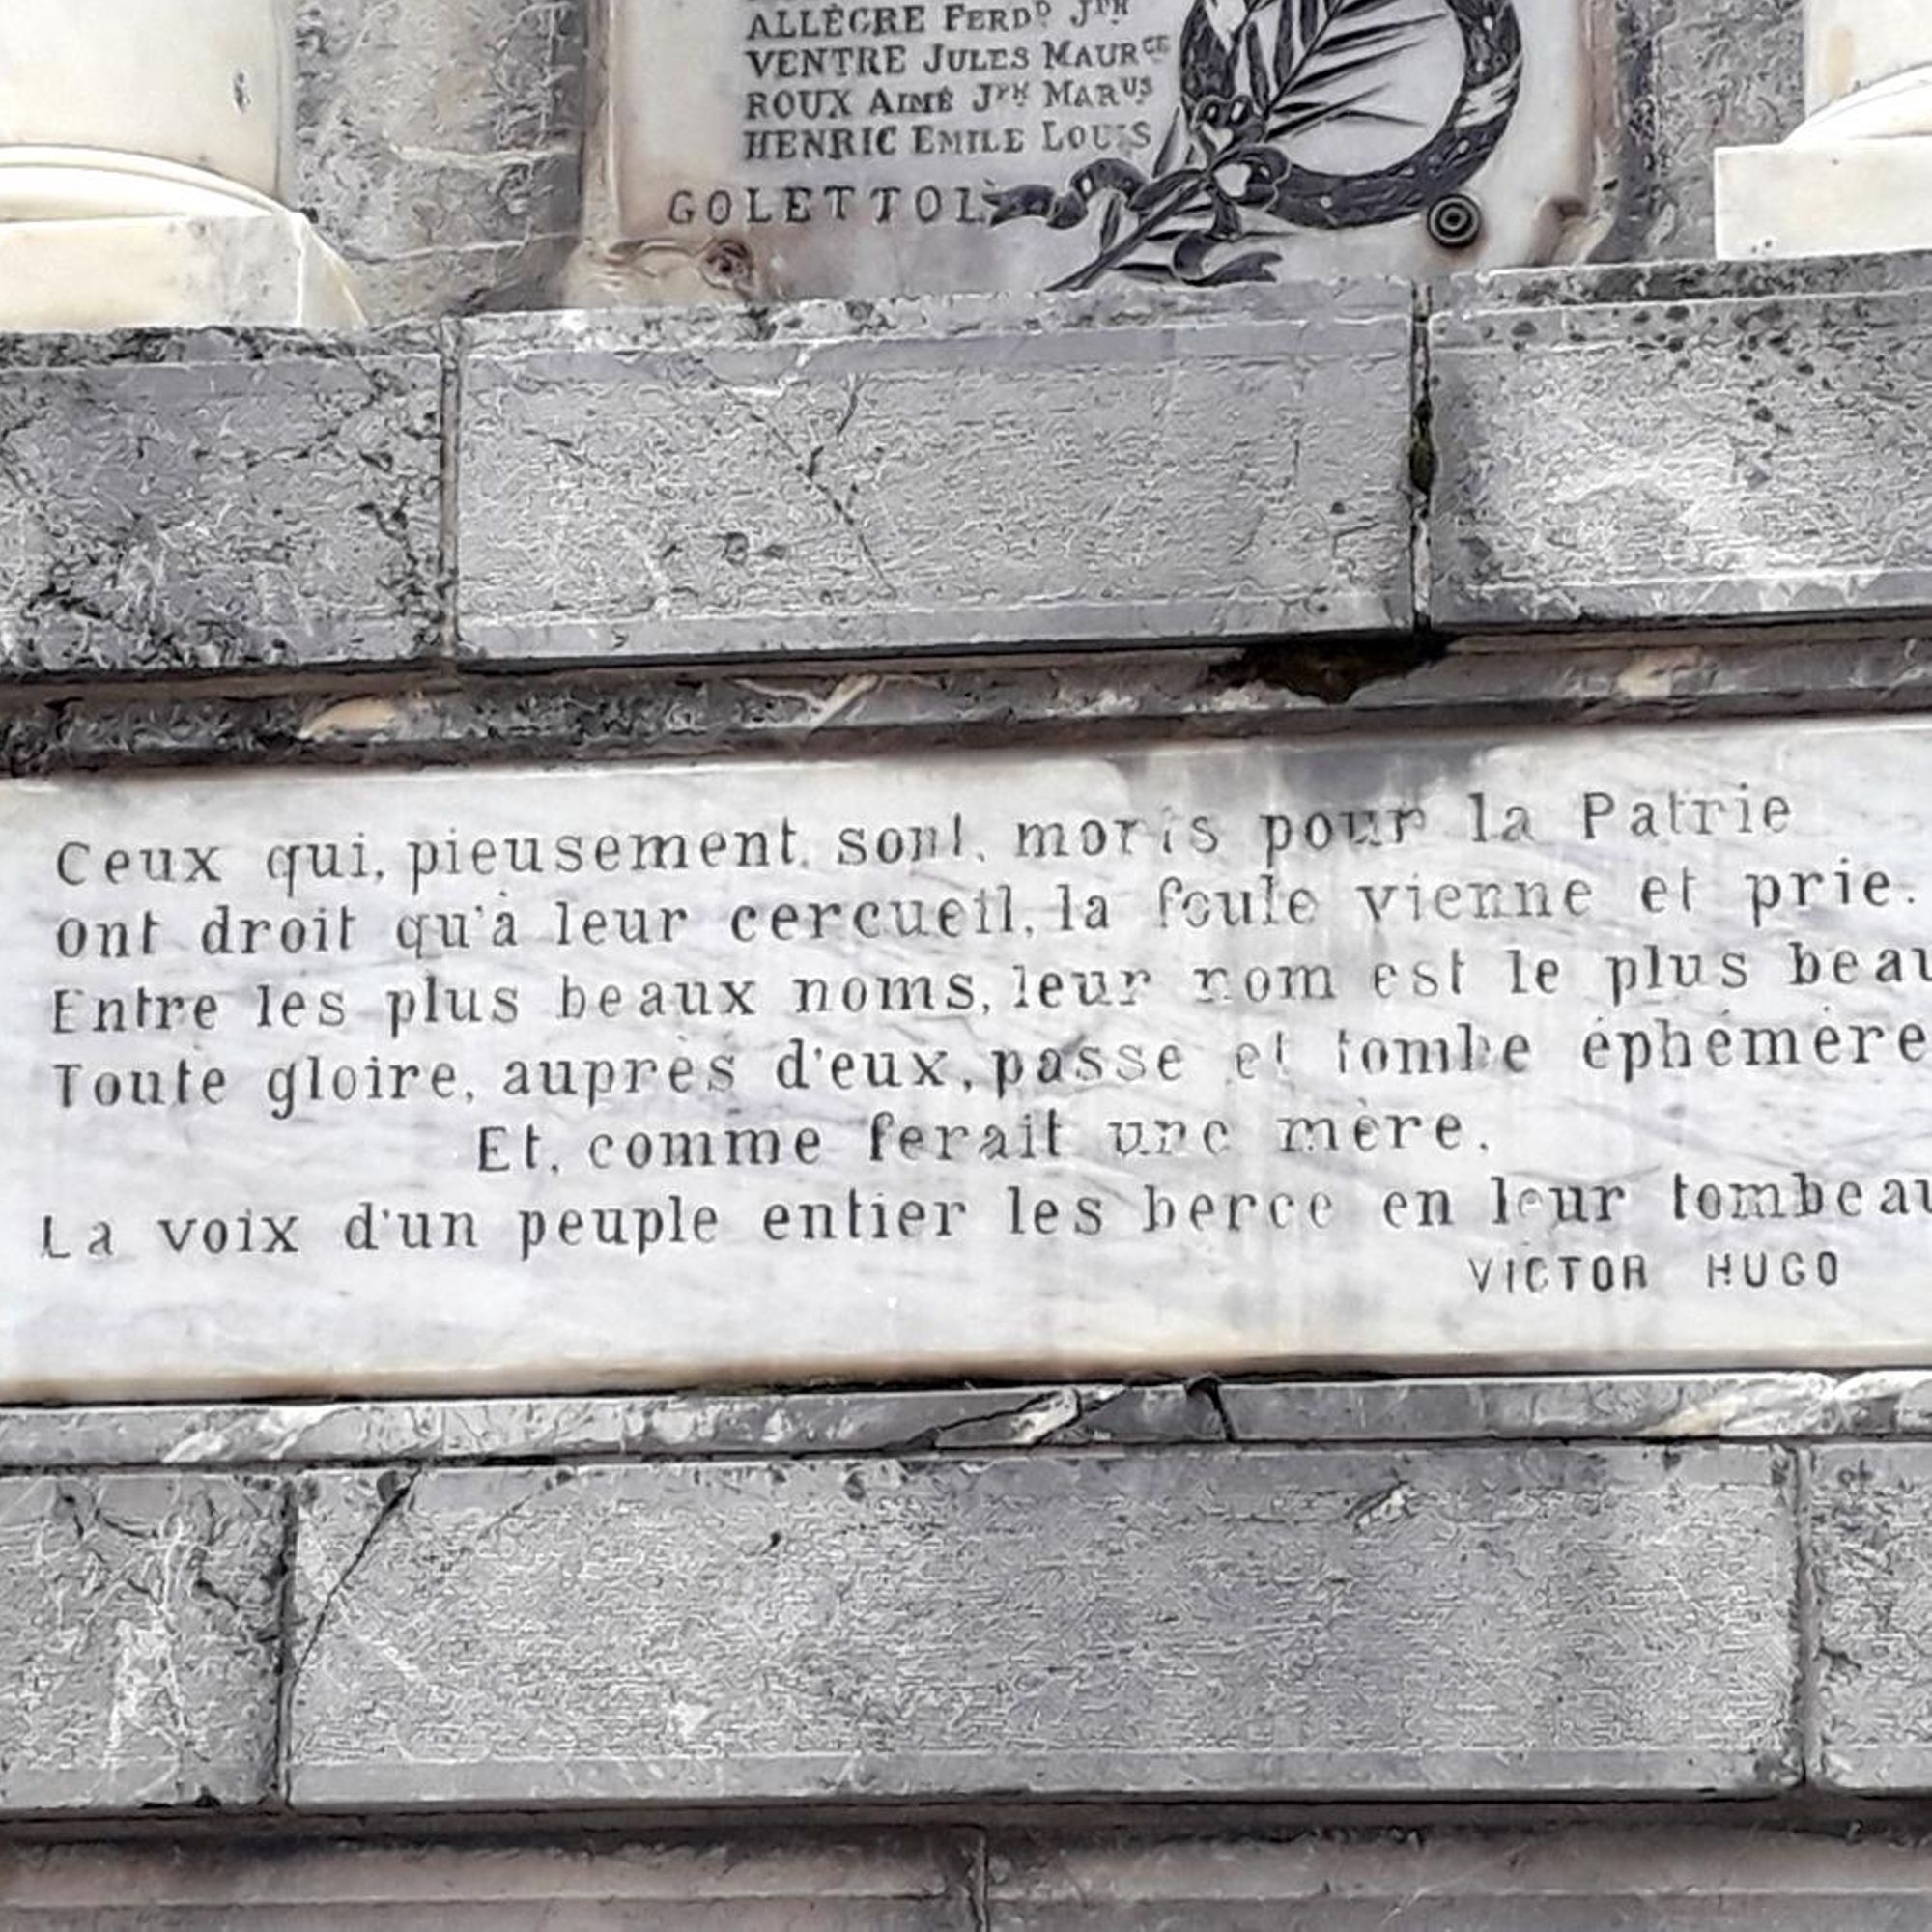 ALLÈGRE FERDD JPH
VENTRE JULES MAURCE
ROUX AIMÉ JPH MARUS
HENRIC EMILE LOUIS
GOLETTO L
Ceux qui, pieusement, sont, morts pour la Patrie
Ont droit qu'à leur cercueil, la foule vienne et prie.
Entre les plus beaux noms, leur nom est le plus beau
Toute gloire, auprès d'eux, passe et tombe éphémère
Et, comme ferait une mère,
La voix d'un peuple entier les berce en leur tombeau
VICTOR HUGO